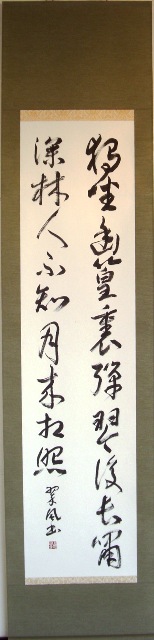 獨坐幽篁裏弾琴復長嘯
深林人不知月来相照
翠風書